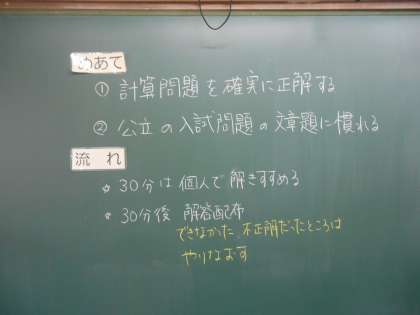 めあて
① 計算問題を確実に正解する
② 公立の入試問題の文章題に慣れる
流れ
◦ 30分は個人で解きすすめる
◦ 30分後 解答配布
できなかった 不正解だったところは
やりなおす